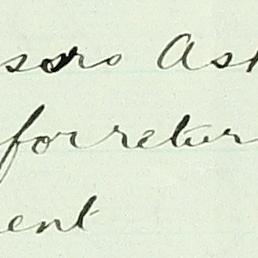 ssors Ask
for retur
ent